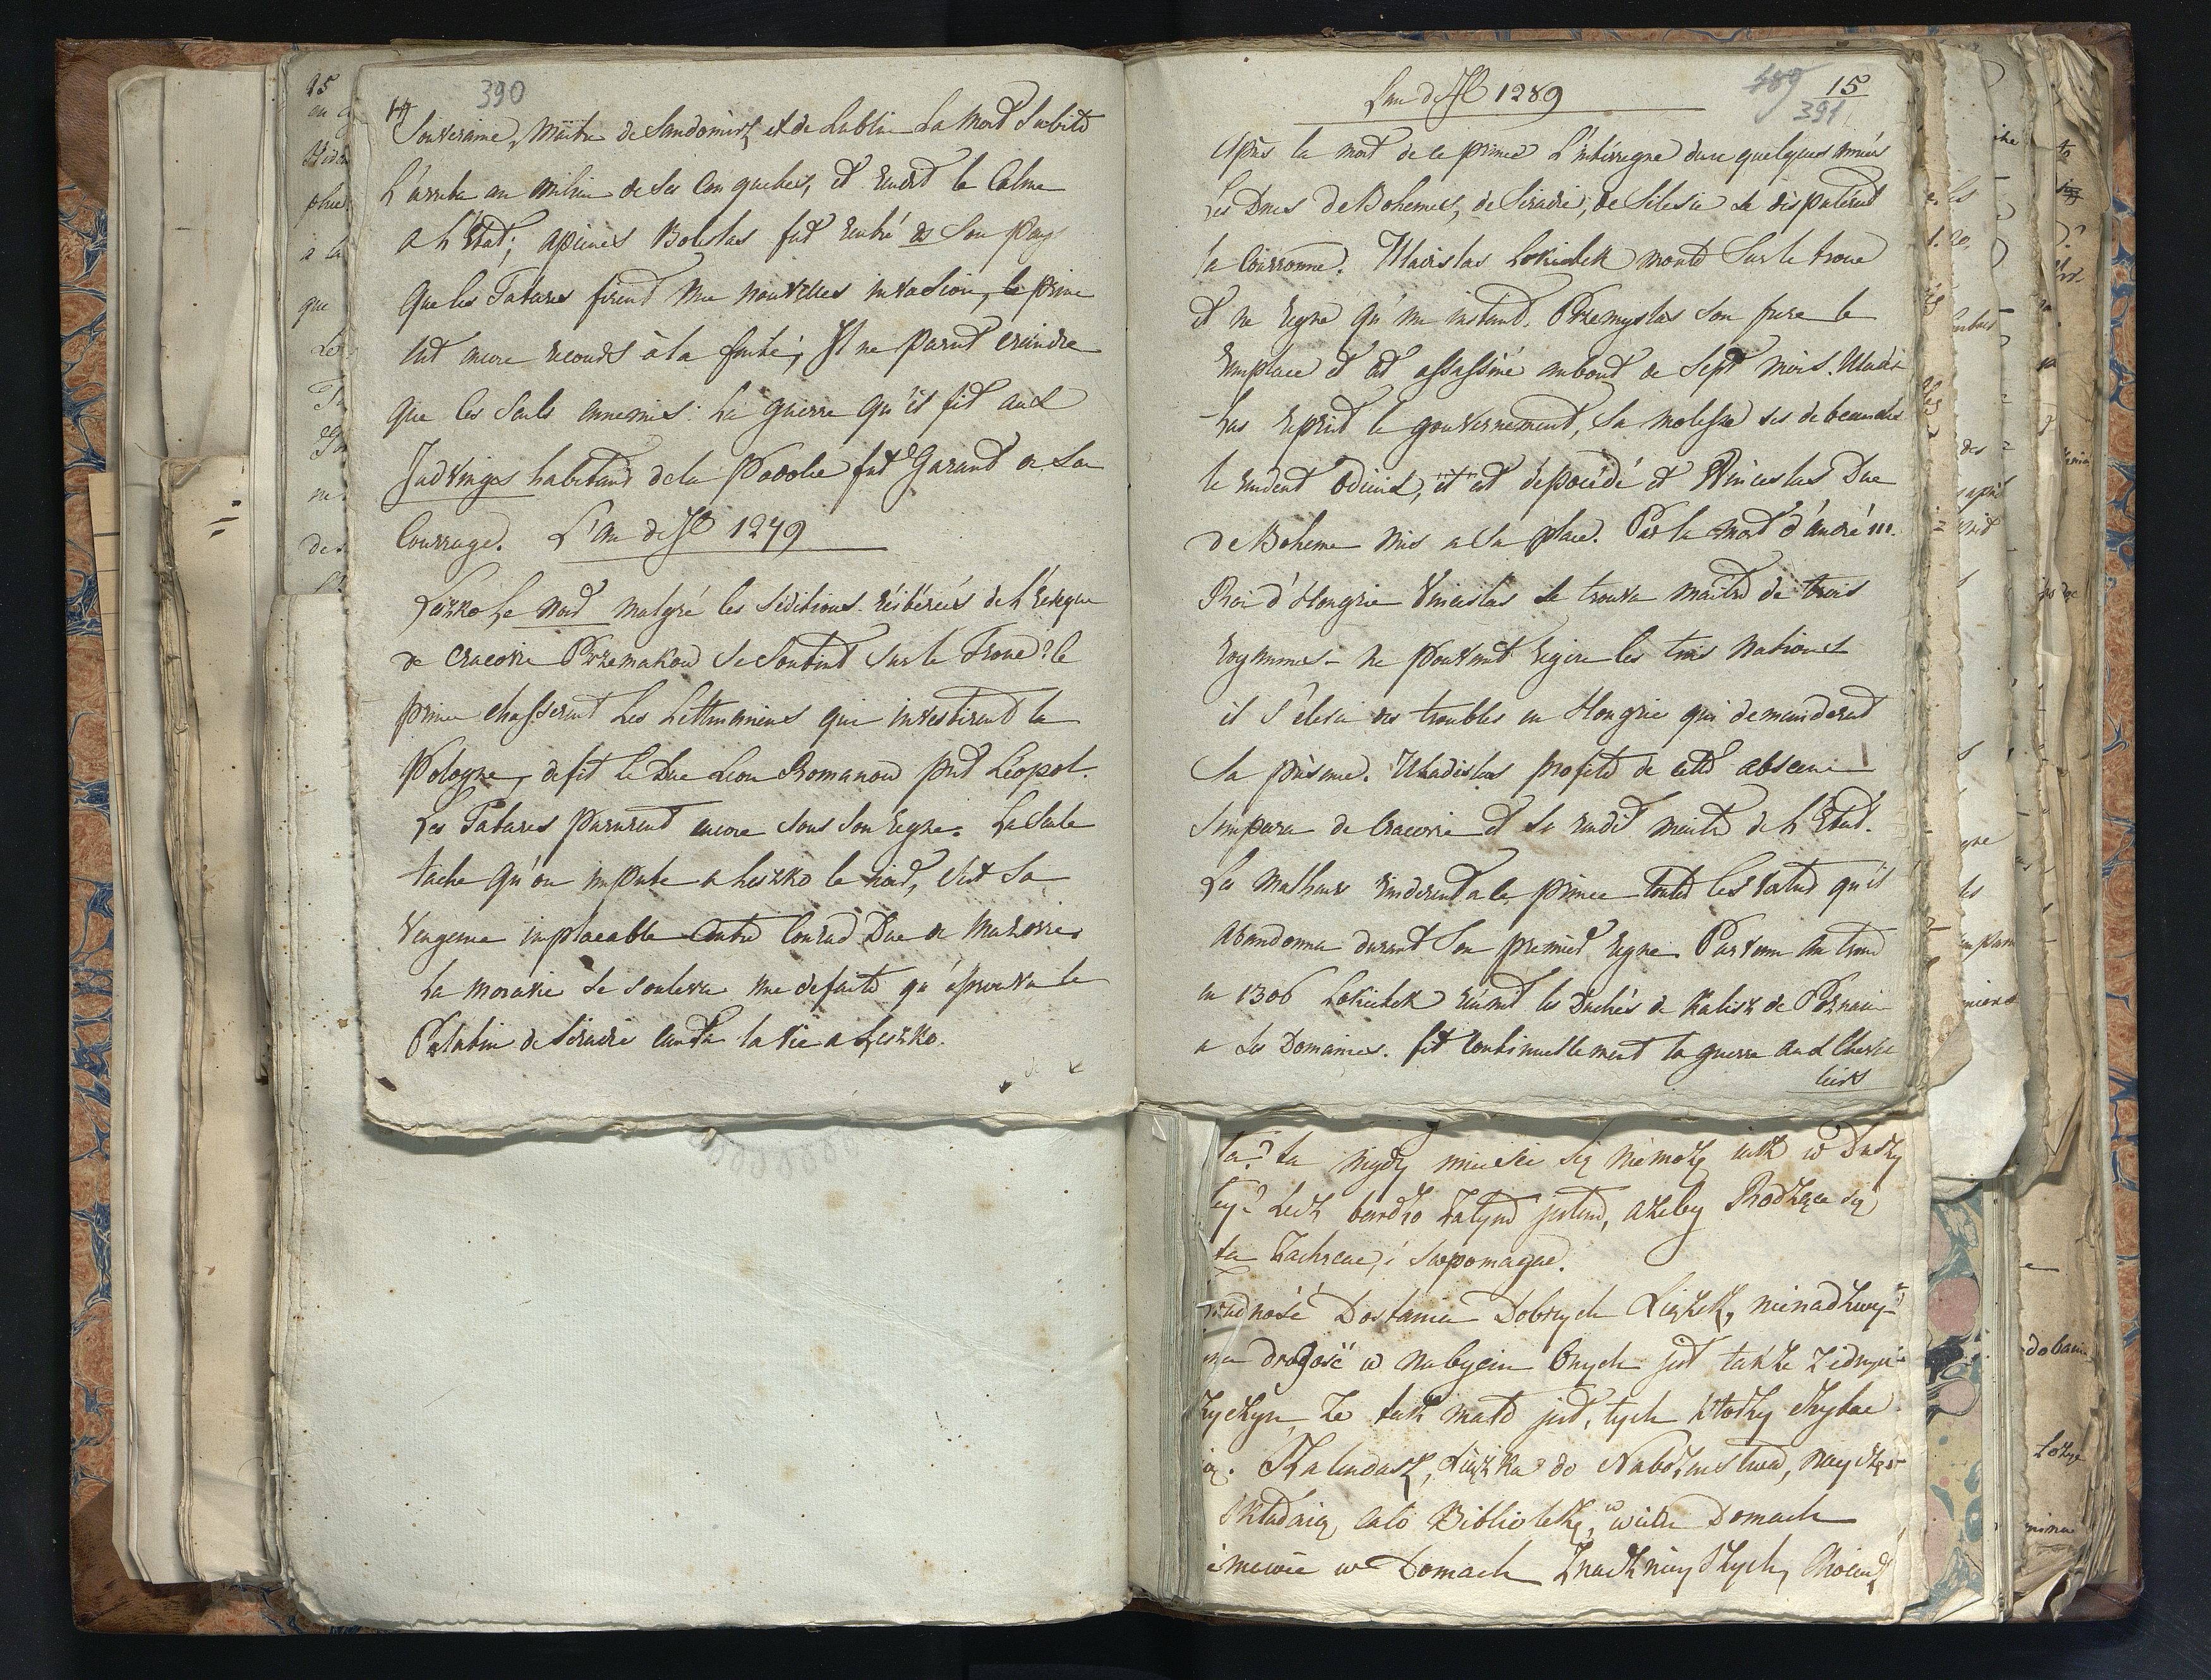 390
14
Souveraine, Maitre de Sandomirz et de Lublin La Mort Subite
L'arreta au milieu de ses Conquettes, et rendit le Calme
a l'Etat; apeines Boleslas fut rentré ds Son pay
Que les Tatares firent une nouvelles invasion, le prince
eut encore recours à la fuite; Il ne parut craindre
que les Seuls ennemis: La guerre qu'il fit aux
Jadvinges habitans de la Podolie fut Garant de Son
Courrage. L'An de JC 1279
Leszko Le noir malgré les séditions réitéreés de l'Evêque
de Cracovie Przemakow Se Soutint Sur le Trone? le
prince chasserent Les Lithuaniens qui investirent la
Pologne, defit le Duc Leon Romanow prit Léopol.
Les Tatares parurent encore sous Son regne. La Seule
tache qu'on impute a Leszko le noir, c'est Sa
Vengence implacable Contre Conrad Duc de Mazovie.
La moravie se souleva une defaite qu'éprouva le
Palatin de Siradie couta la vie a Leszko.
L'an de JC 1289
489 15
391
Après la mort de ce prince L'intérregne dure quelques années
Les Ducs de Bohemes, de Siradie, de Silesie se disputerent
la Courronne. Uladislas Lokietek monte Sur le trone
et ne regne qu'un instant. Przemyslas Son frere le
remplace et est assassiné au bout de Sept mois. Uladis
-las reprit le gouvernement, Sa molesse ses debeauches
le rendent Odieux, et est dépocédé et Winceslas Duc
de Boheme mis a Sa place. Par la mort d'andré III.
Roi d'Hongrie Vinceslas se trouva maitre de trois
royaumes - ne pouvant regire les trois Nations
il S'eleva des troubles en Hongrie qui demanderent
Sa présence. Uladislas profite de cette absence
S'empara de Cracovie et Se rendit maitre de l'Etat.
Les Malheurs renderent a ce prince toute les vertus qu'il
abandonna durant Son premier regne. Parvenu au trone
en 1306 Lokietek réunit les Duchés de Kalisz de Poznanie
a Ses Domaines. fit continuellement la guerre aux Cheva
liers
ta? ta nigdy mieścić się niemoże iak w Duszy
tey? Lecz bardzo Zatym jestem, ażeby Rodzące się
ta Zachęcać, i Swpomagać.
trudność Dostania Dobrych Książek, nienadzwy-
na drogość w nabyciu Onych jest także iedną
Zyczyn Ze tak mało jest, tych którzy czytać
ią. Kalendarz, Książka do Nabożenstwa, nayczęś
Składaią całą Bibliotekę, w wielu Domach
i mowie w Domach Znacznieyszych, Chociaż